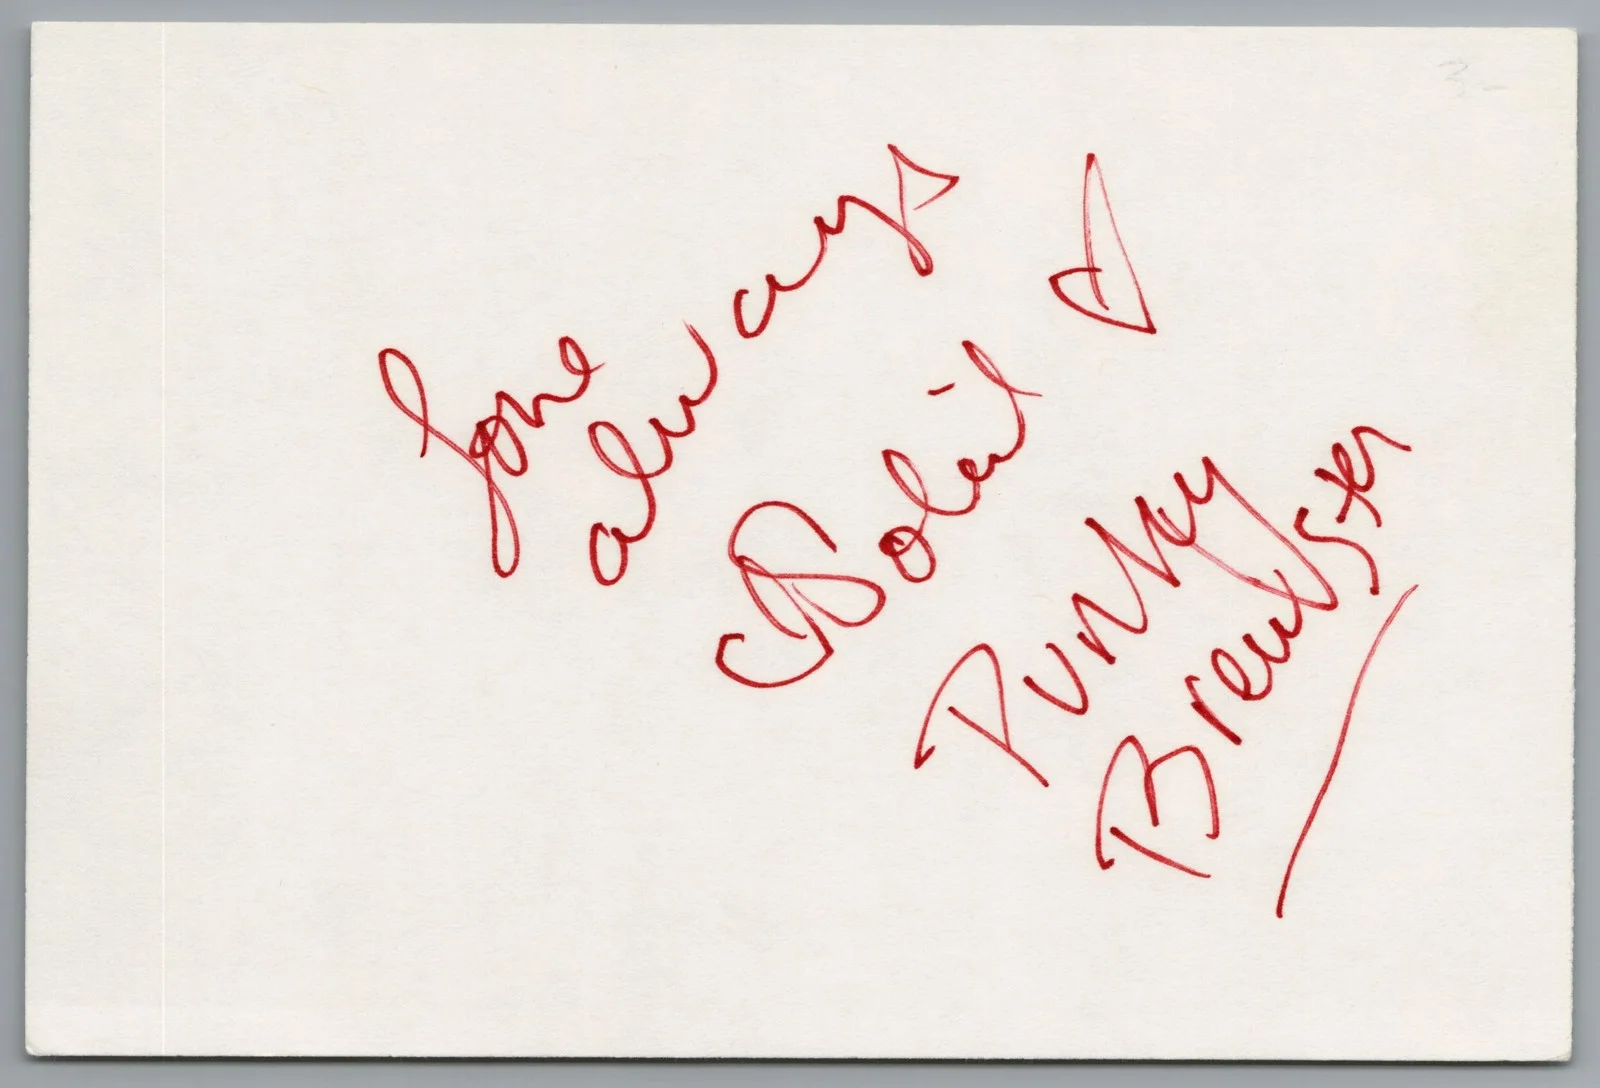 3-
Love
always
Soleil ♡
Punky
Brewster